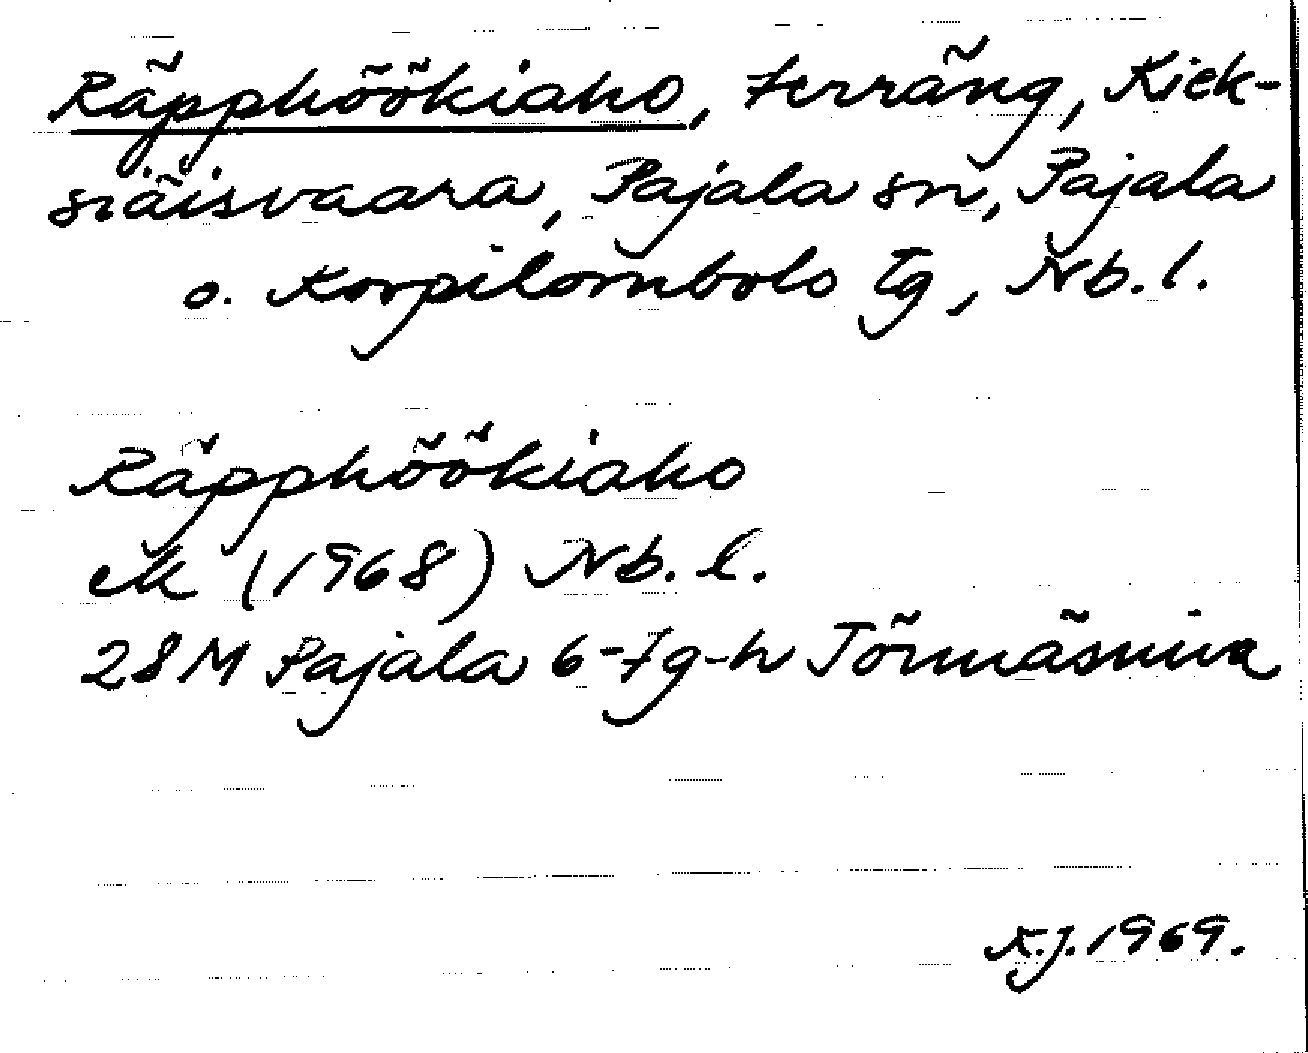 Räpphöökiaho, terräng, Kiek-
siäisvaara, Pajala sn, Pajala
o. Korpilombolo tg, Nb. l.
Räpphöökiaho
ek (1968) Nb. l.
28M Pajala 6-7g-h Törmäsniva
K.J. 1969.